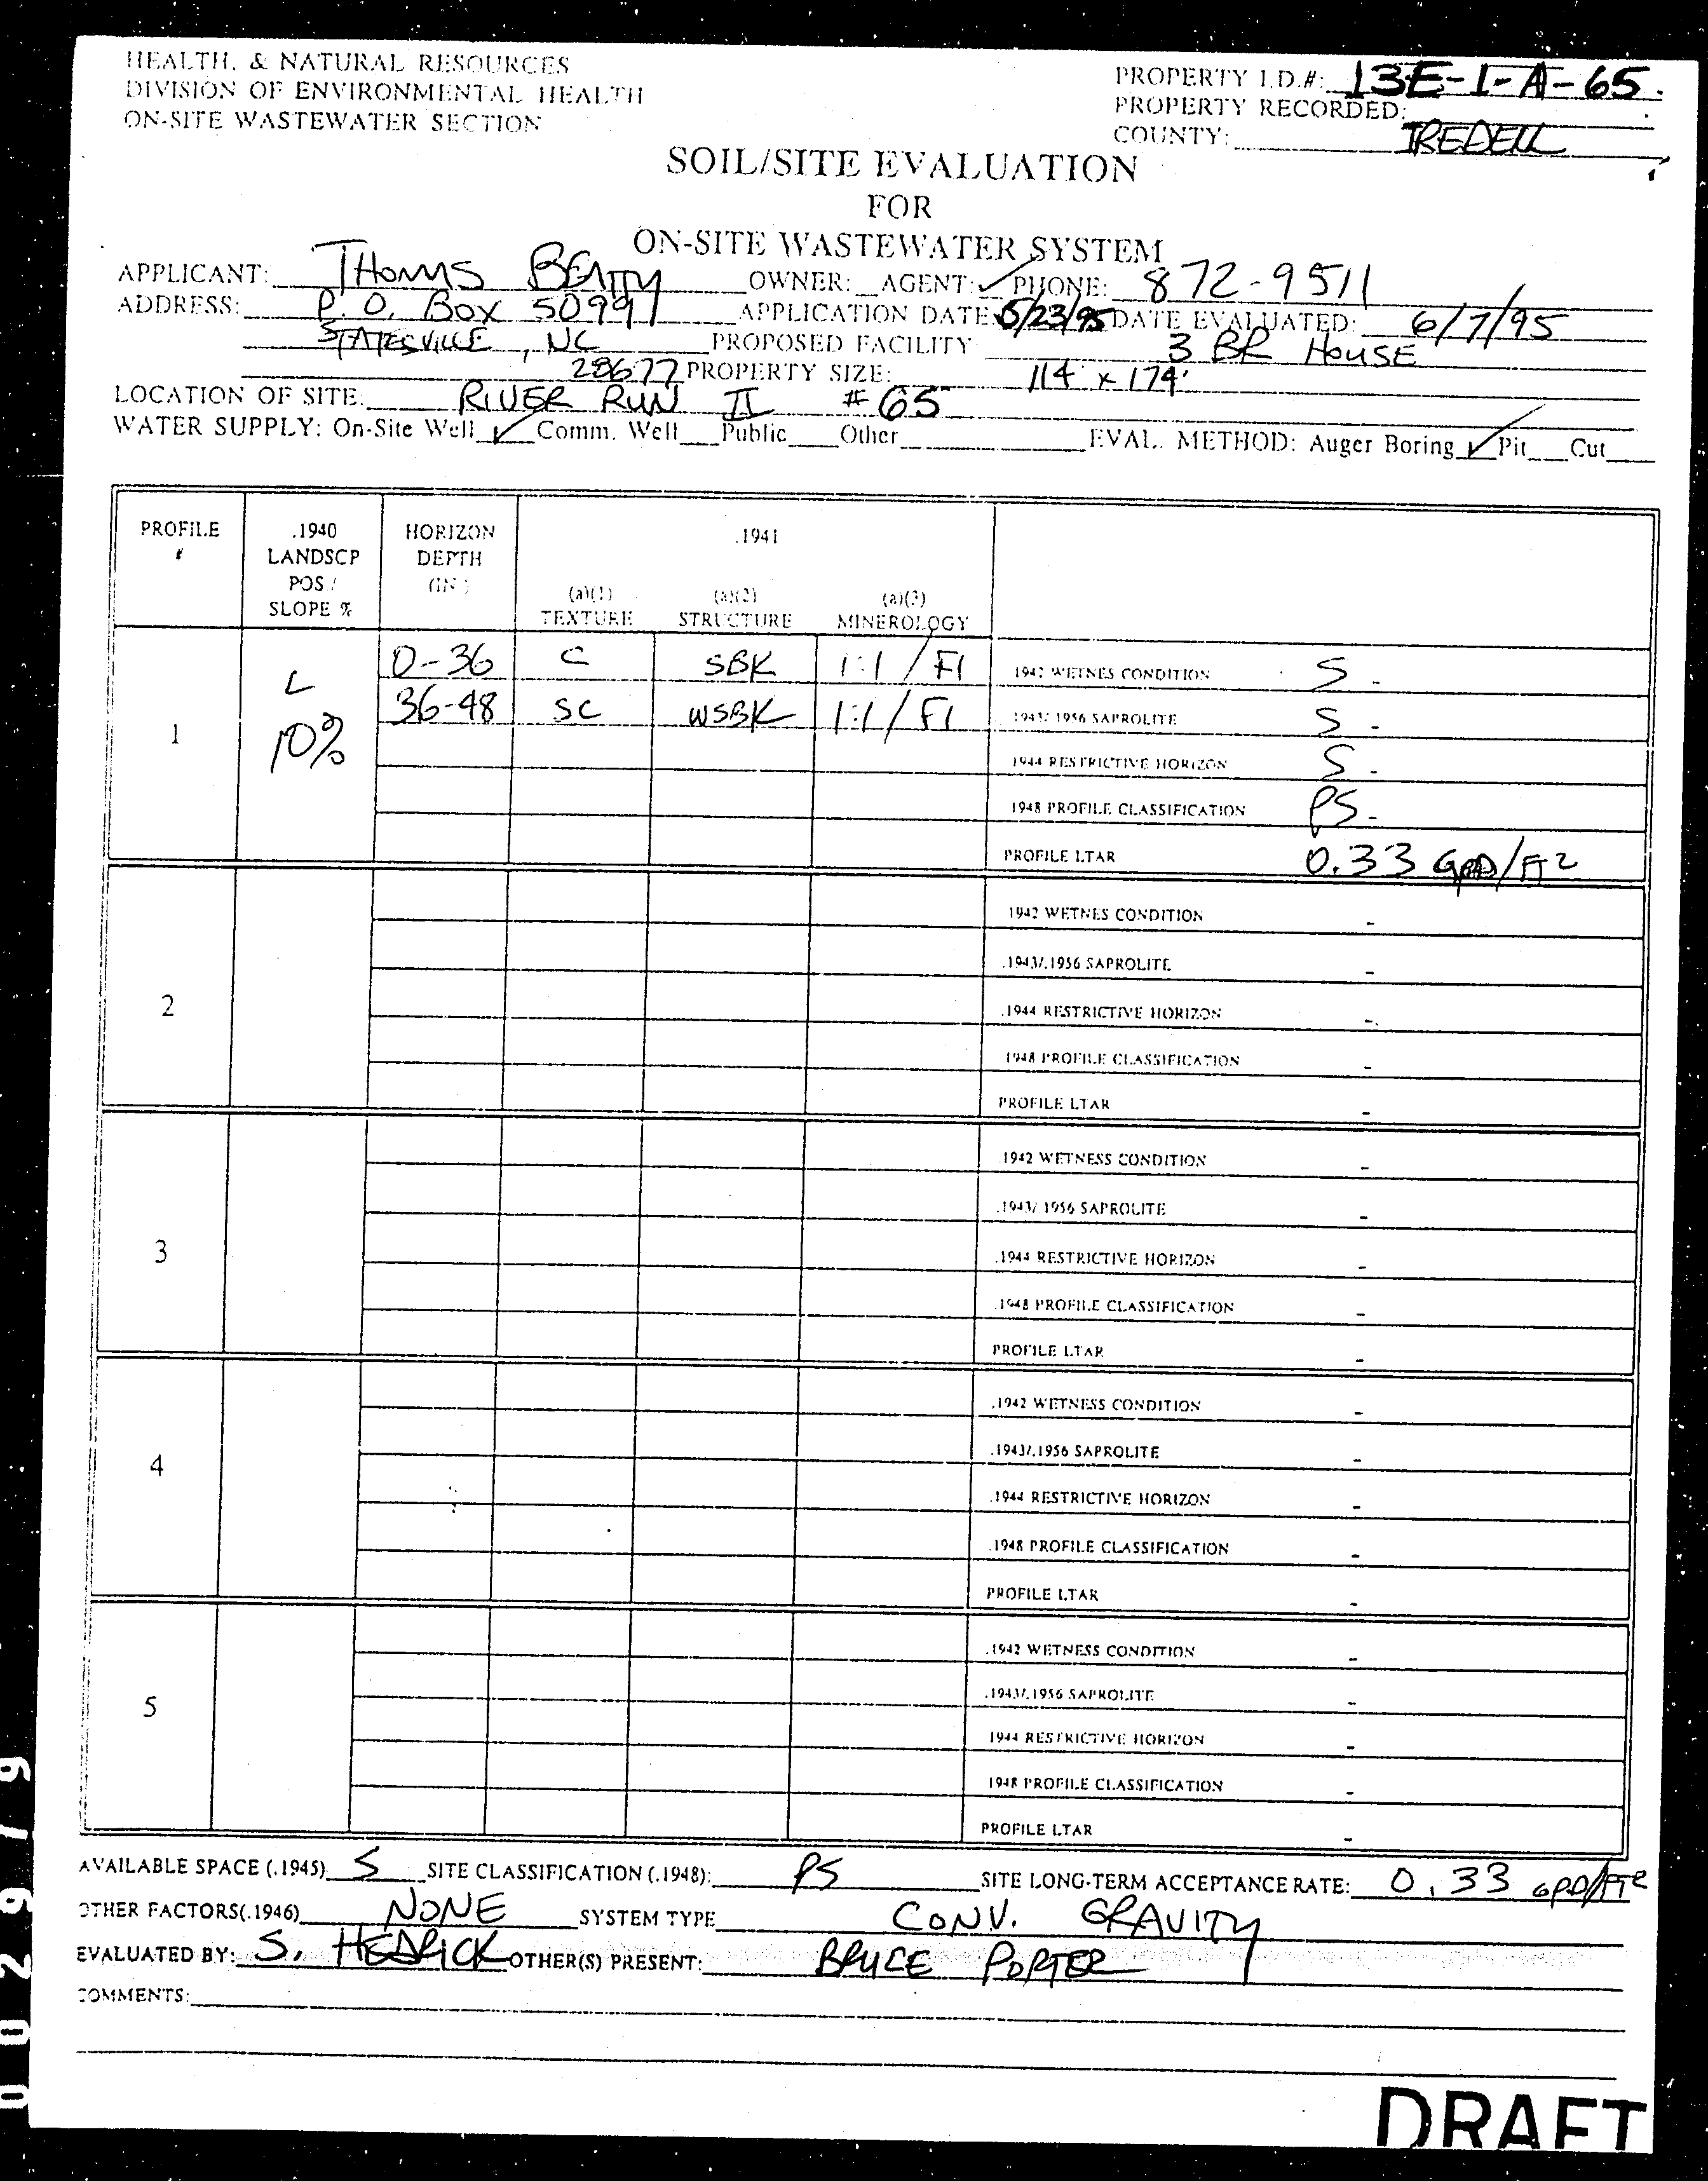 HEALTH, & NATURAL RESOURCES
DIVISION OF ENVIRONMENTAL HEALTH
ON-SITE WASTEWATER SECTION
PROPERTY I.D.#: 13E-1-A-65.
PROPERTY RECORDED:
COUNTY: IREDELL
SOIL/SITE EVALUATION
FOR
ON-SITE WASTEWATER SYSTEM
APPLICANT: THOMAS BEATTY OWNER: AGENT: ✓ PHONE: 872-9511
ADDRESS: P.O. BOX 5099 APPLICATION DATE: 5/23/95 DATE EVALUATED: 6/7/95
STATESVILLE, NC PROPOSED FACILITY 3 BR HOUSE
28677 PROPERTY SIZE: 114' x 174'
LOCATION OF SITE: RIVER RUN II #65
WATER SUPPLY: On-Site Well ✓ Comm. Well Public Other EVAL. METHOD: Auger Boring ✓ Pit Cut
PROFILE # .1940 LANDSCP POS / SLOPE % HORIZON DEPTH (IN.) .1941
(a)(1) TEXTURE (a)(2) STRUCTURE (a)(3) MINEROLOGY
1 L 10%
0-36 C SBK 1:1 / FI 1942 WETNES CONDITION S -
36-48 SC WSBK 1:1 / FI .1943/.1956 SAPROLITE S -
1944 RESTRICTIVE HORIZON S -
1948 PROFILE CLASSIFICATION PS -
PROFILE LTAR 0.33 GPD/FT2
2
1942 WETNES CONDITION -
.1943/.1956 SAPROLITE -
.1944 RESTRICTIVE HORIZON -
.1948 PROFILE CLASSIFICATION -
PROFILE LTAR -
3
.1942 WETNESS CONDITION -
.1943/.1956 SAPROLITE -
.1944 RESTRICTIVE HORIZON -
.1948 PROFILE CLASSIFICATION -
PROFILE LTAR -
4
.1942 WETNESS CONDITION -
.1943/.1956 SAPROLITE -
.1944 RESTRICTIVE HORIZON -
.1948 PROFILE CLASSIFICATION -
PROFILE LTAR -
5
.1942 WETNESS CONDITION -
.1943/.1956 SAPROLITE -
1944 RESTRICTIVE HORIZON -
1948 PROFILE CLASSIFICATION -
PROFILE LTAR -
AVAILABLE SPACE (.1945) S SITE CLASSIFICATION (.1948): PS SITE LONG-TERM ACCEPTANCE RATE: 0.33 GPD/FT2
OTHER FACTORS(.1946) NONE SYSTEM TYPE CONV. GRAVITY
EVALUATED BY: S. HEDRICK OTHER(S) PRESENT: BRUCE PORTER
COMMENTS:
DRAFT
002979